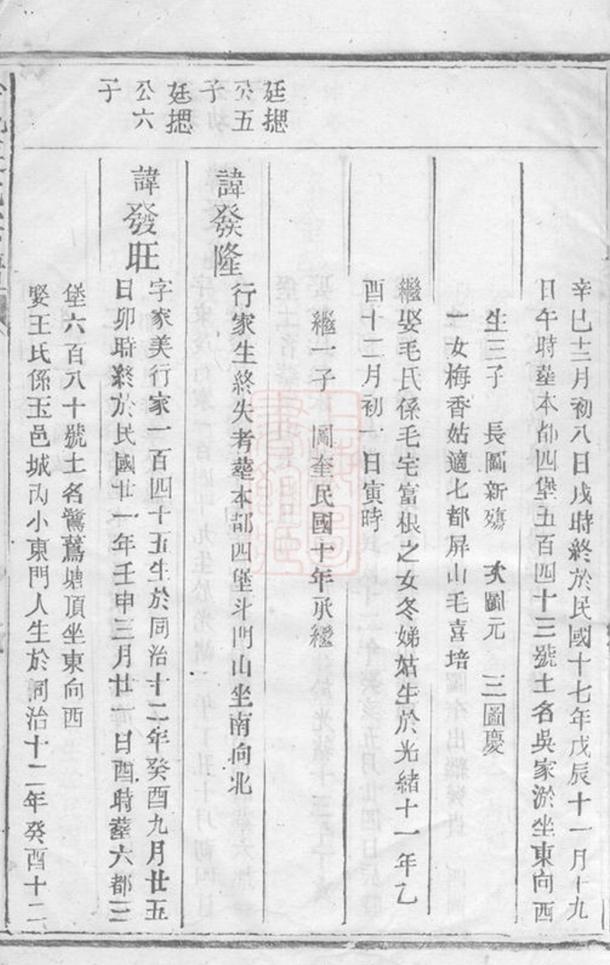 辛巳十二月初八日戌時終於民國十七年戊辰十一月十九
日午時塟本都四堡五百四十三號土名吳家淤坐東向西
生三子　長圖新殤　次圖元　三圖慶
一女梅香姑適北都屏山毛喜培
繼娶毛氏係毛宅富根之女冬娣姑生於光緒十一年乙
酉十二月初一日寅時
繼一子　圖奎民國十年承繼
廷摠
公五
子
諱發隆
行家生終失考塟本都四堡斗門山坐南向北
廷摠
公六
子
諱發旺
字家美行家一百四十五生於同治十二年癸酉九月廿五
日卯時終於民國廿一年壬申三月廿一日酉時塟六都三
堡六百八十號土名鷺鷥塘頂坐東向西
娶王氏係玉邑城內小東門人生於同治十二年癸酉十二